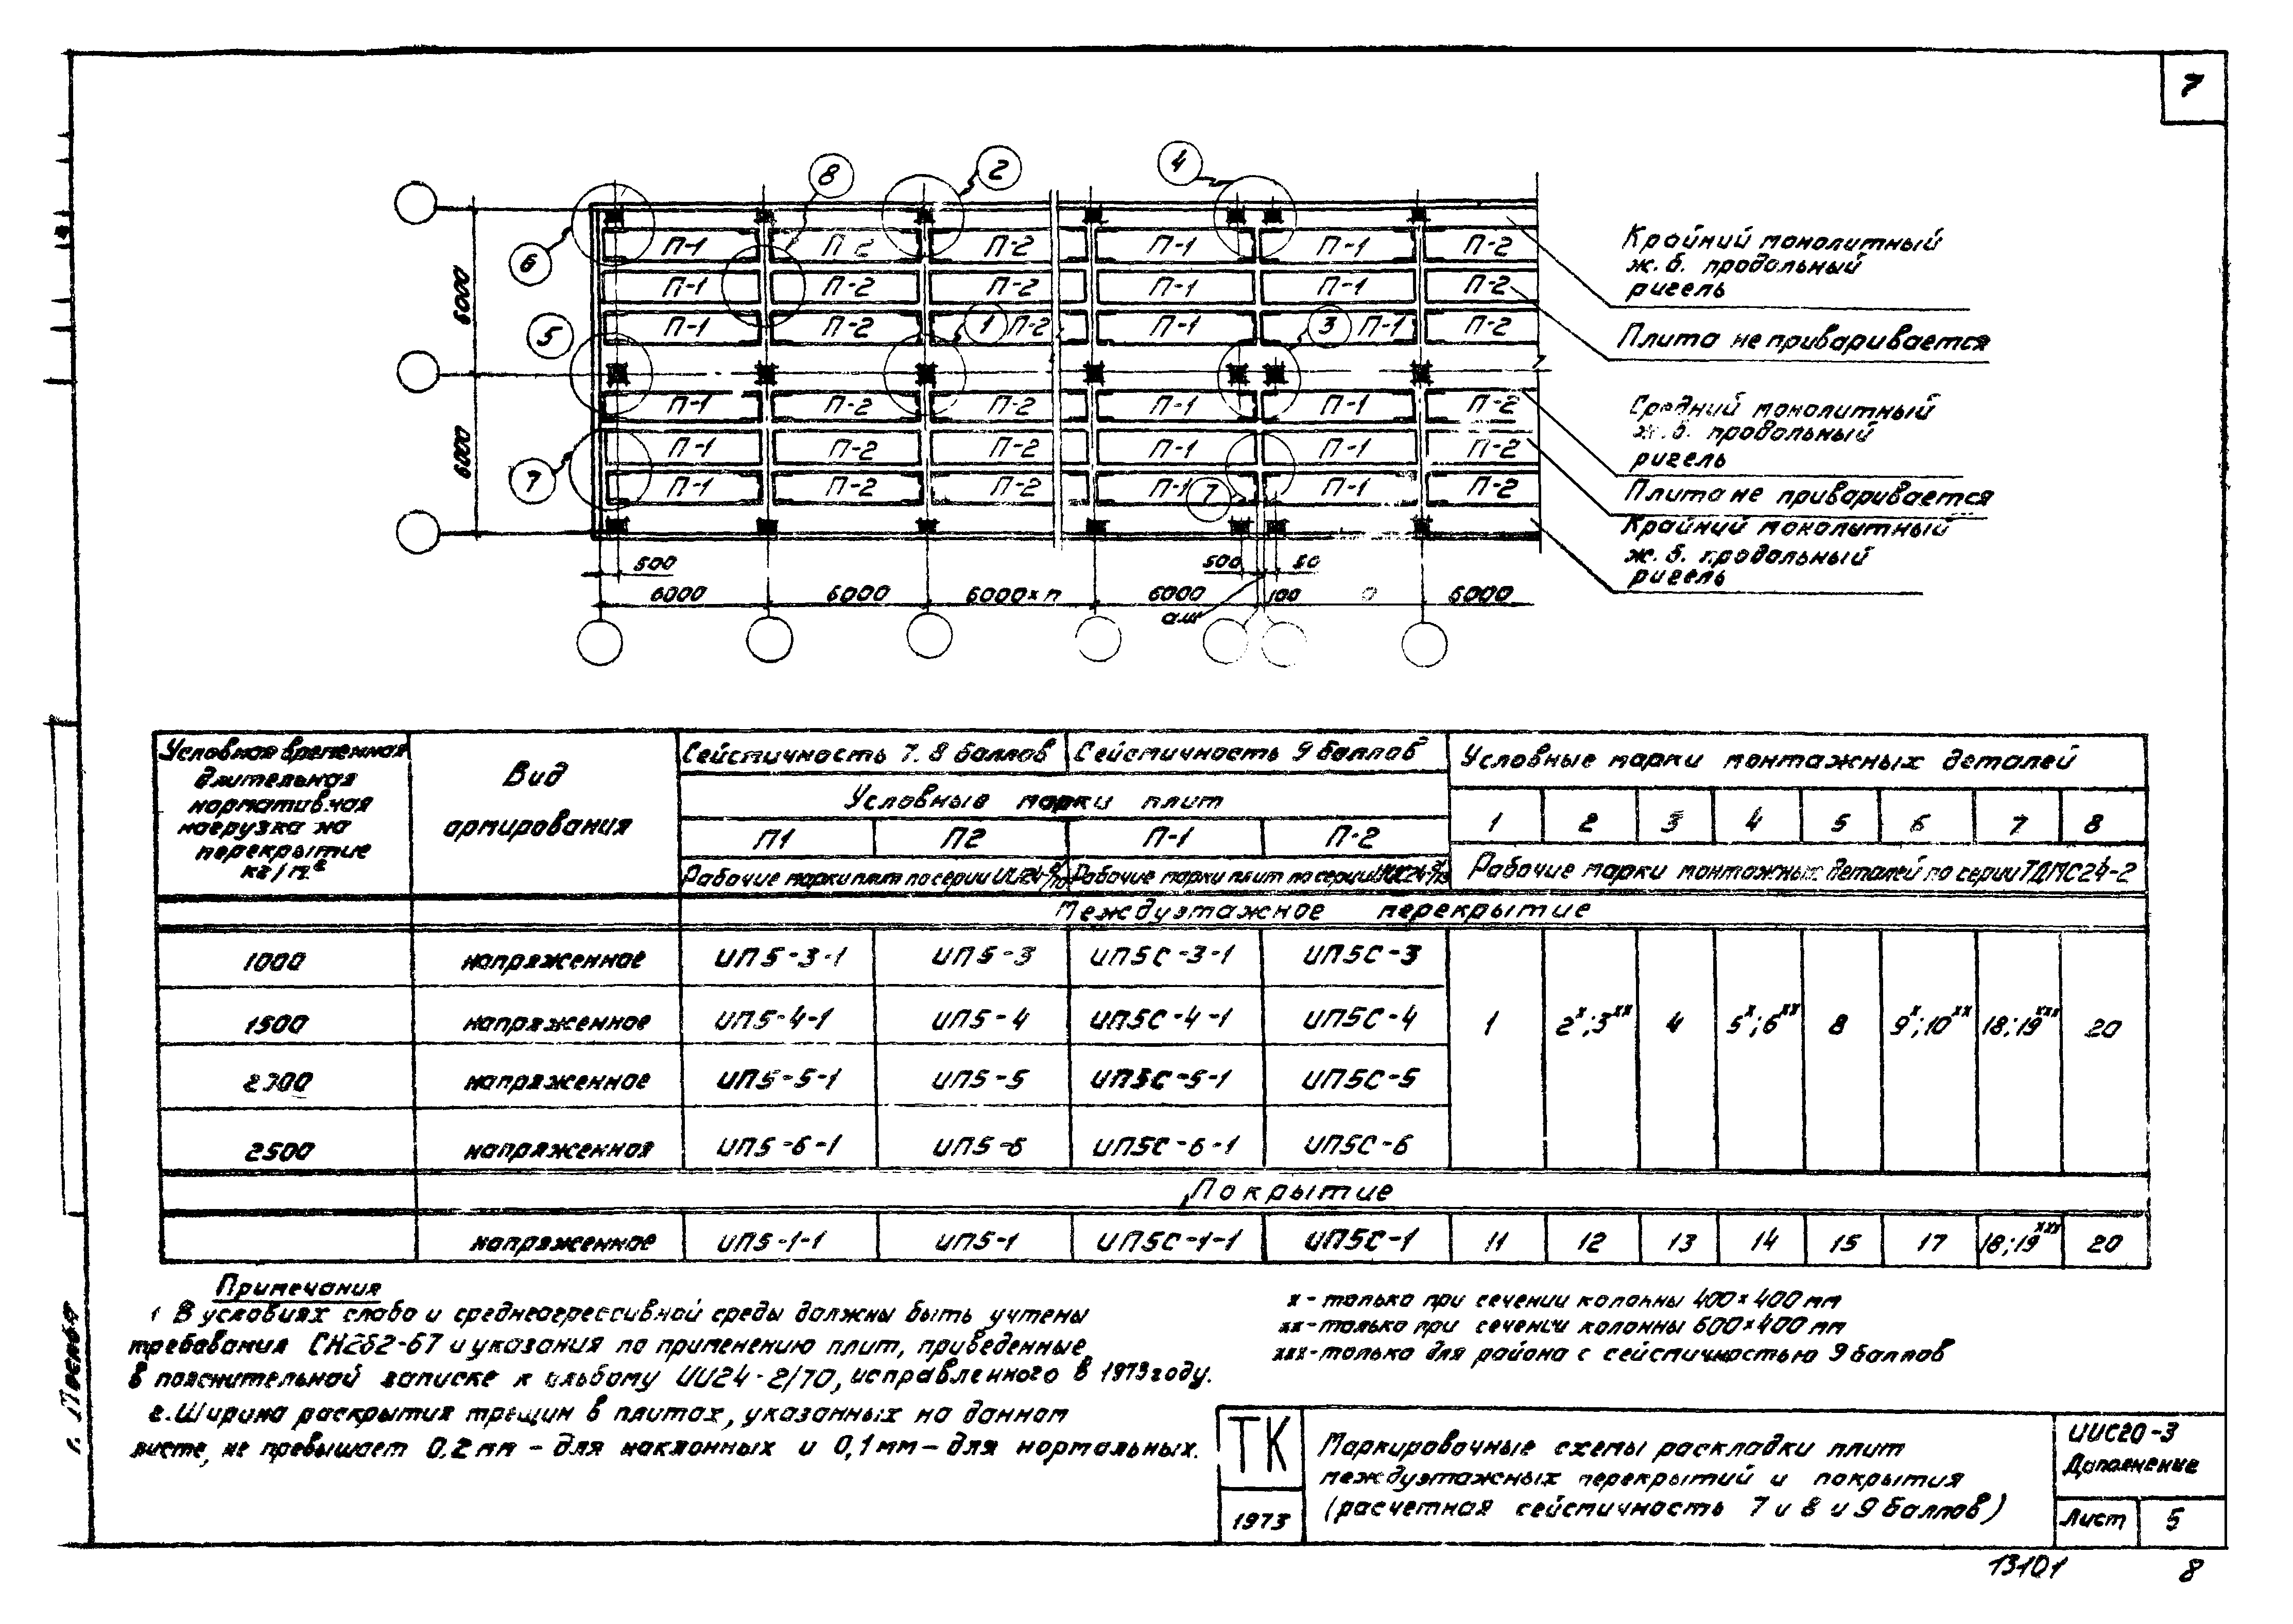 7
8
2
4
6
5
1
3
7
7
П-1 П-2 П-2 П-1 П-1 П-2
П-1 П-2 П-2 П-1 П-1 П-2
П-1 П-2 П-2 П-1 П-1 П-2
П-1 П-2 П-2 П-1 П-1 П-2
П-1 П-2 П-2 П-1 П-1 П-2
П-1 П-2 П-2 П-1 П-1 П-2
6000
6000
500 500 50
6000 6000 6000×п 6000 100 6000
а.ш
Крайний монолитный
ж.б. продольный
ригель
Плита не приваривается
Средний монолитный
ж.б. продольный
ригель
Плита не приваривается
Крайний монолитный
ж.б. продольный
ригель
Условная временная
длительная
нормативная
нагрузка на
перекрытие
кг/м²
Вид
армирования
Сейсмичность 7. 8 баллов
Сейсмичность 9 баллов
Условные марки монтажных деталей
Условные марки плит
П1 П2 П-1 П-2
1 2 3 4 5 6 7 8
Рабочие марки плит по серии
Рабочие марки плит по серии
Рабочие марки монтажных деталей по серии ТДМС24-2
Междуэтажное перекрытие
1000 напряженное ИП5-3-1 ИП5-3 ИП5С-3-1 ИП5С-3
1500 напряженное ИП5-4-1 ИП5-4 ИП5С-4-1 ИП5С-4 1 2ˣ;3ˣˣ 4 5ˣ;6ˣˣ 8 9ˣ;10ˣˣ 18;19ˣˣˣ 20
напряженное ИП5-5-1 ИП5-5 ИП5С-5-1 ИП5С-5
2500 напряженная ИП5-6-1 ИП5-6 ИП5С-6-1 ИП5С-6
Покрытие
напряженное ИП5-1-1 ИП5-1 ИП5С-1-1 ИП5С-1 11 12 13 14 15 17 18;19ˣˣˣ 20
Примечания
1 В условиях слабо и среднеагрессивной среды должны быть учтены
требования СН262-67 и указания по применению плит, приведенные
в пояснительной записке к альбому ИИ24-2/70, исправленного в 1973 году.
2. Ширина раскрытия трещин в плитах, указанных на данном
листе, не превышает 0.2 мм - для наклонных и 0,1 мм - для нормальных.
х - только при сечении колонны 400×400 мм
хх - только при сечении колонны 600×400 мм
ххх - только для района с сейсмичностью 9 баллов
ТК
1973
Маркировочные схемы раскладки плит
междуэтажных перекрытий и покрытия
(расчетная сейсмичность 7 и 8 и 9 баллов)
ИИС20-3
Дополнение
Лист 5
13101 8